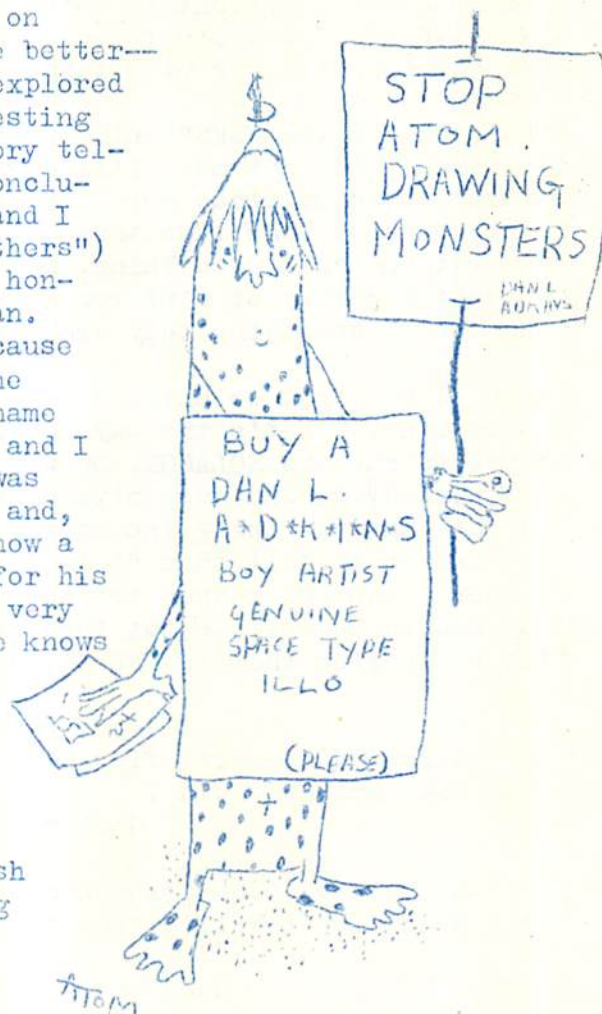 on
e better--
explored
esting
ory tel-
onclu-
and I
thers")
hon-
an.
cause
ne
name
and I
was
and,
now a
for his
very
e knows
sh
g
STOP
ATOM.
DRAWING
MONSTERS
DAN L.
ADKINS
BUY A
DAN L.
A*D*K*I*N*S
BOY ARTIST
GENUINE
SPACE TYPE
ILLO
(PLEASE)
ATOM